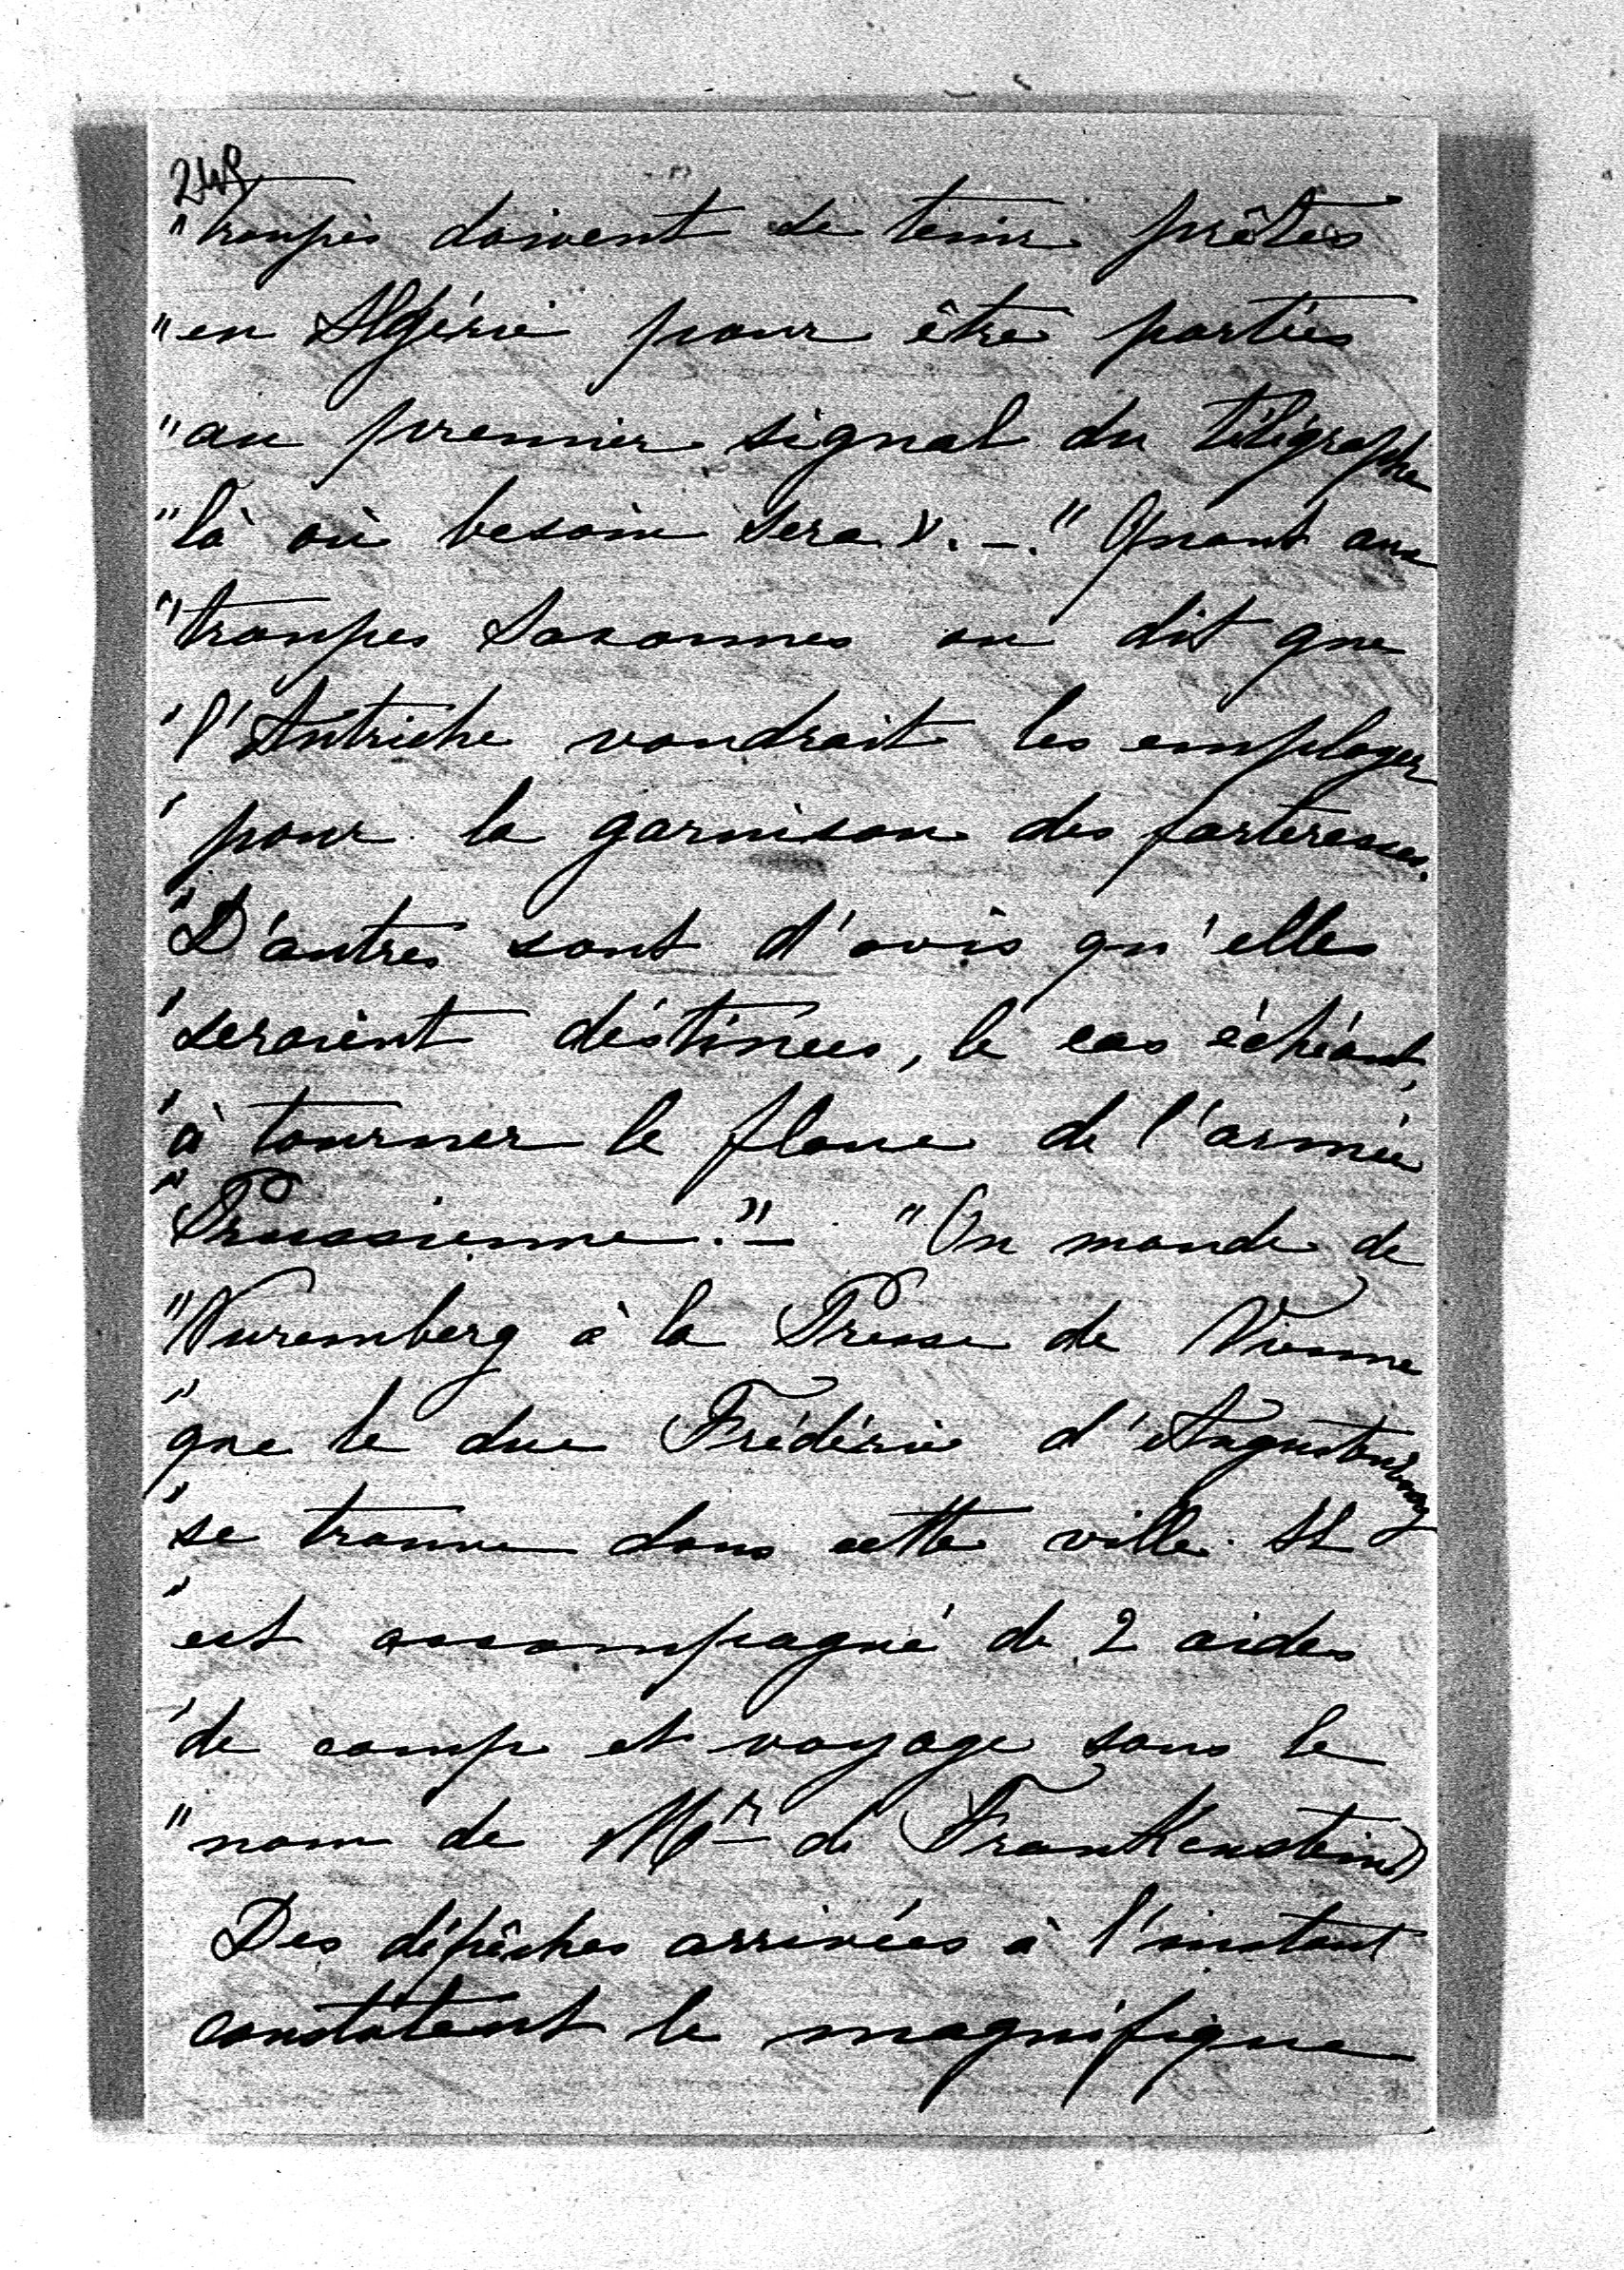 "troupes doivent se tenir prêtes
"en Algérie pour être portées
"au premier signal du télégraphe
"là où besoin sera». – "Quant aux
"troupes Saxonnes on dit que
"l'Autriche voudrait les employer
"pour la garnison des forteresses.
"D'autres sont d'avis qu'elles
"seraient déstinees, le cas échéant,
"à tourner le flanc de l'armée
"Prussienne." – "On mande de
"Nuremberg à la Presse de Vienne
"que le duc Frédéric d'Augustenburg
"se trouve dans cette ville. Il
"est accompagné de 2 aides
"de camp et voyage sous le
"nom de Mr de Frankenstein)
Des dépêches arrivées à l'instant
constatent le magnifique